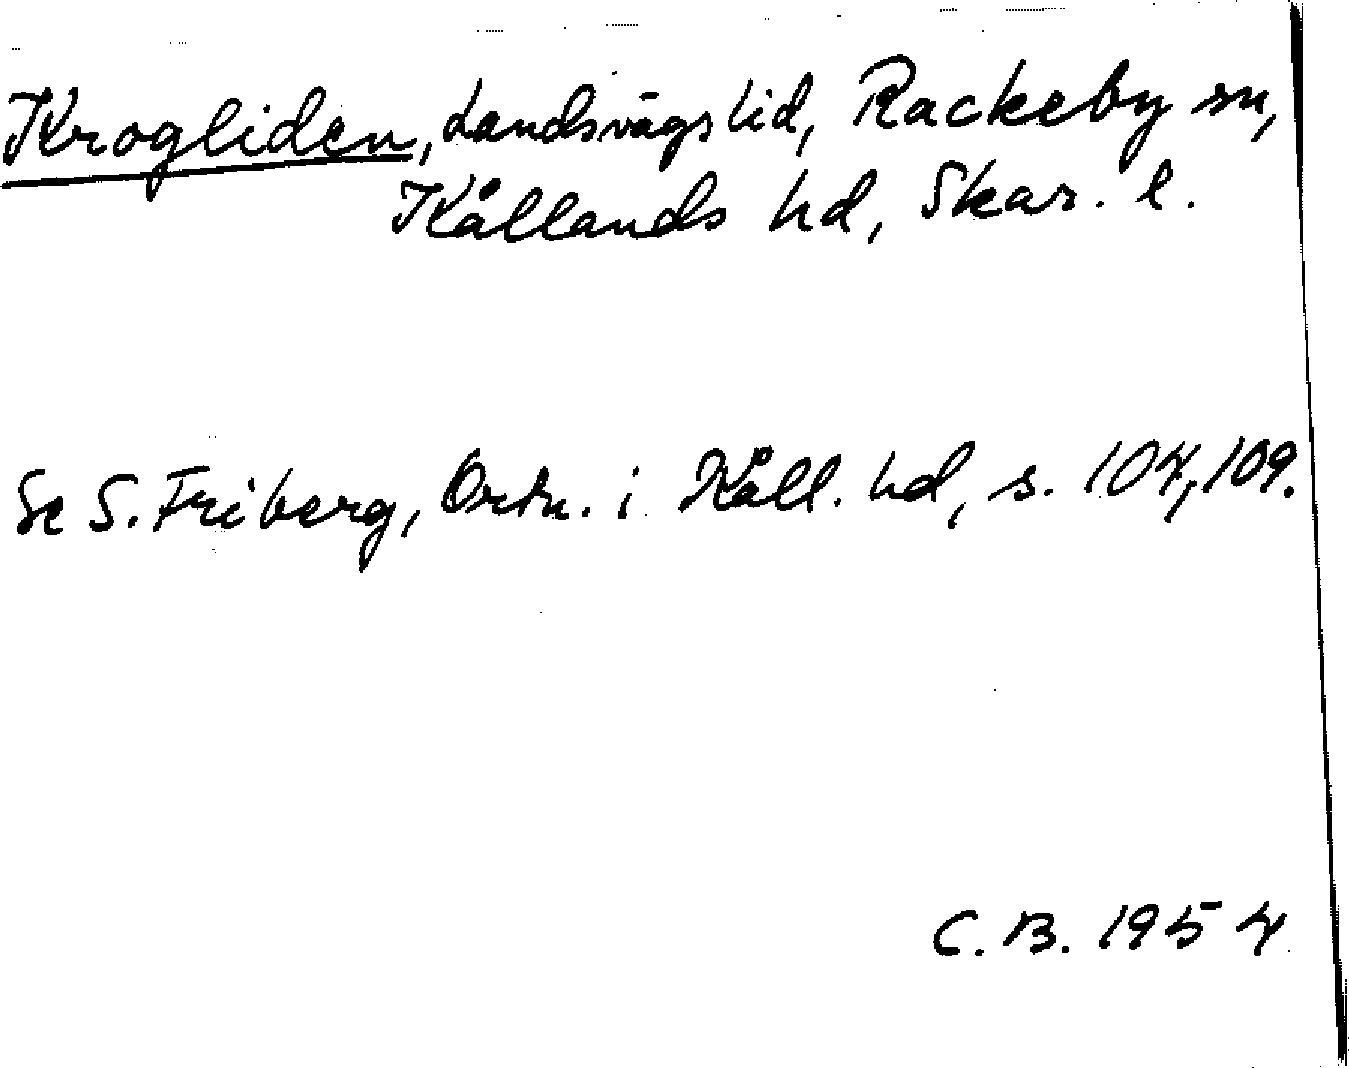 Krogliden, Landsvägslid, Rackeby sn,
Kållands hd, Skar. l.
Se S. Friberg, Ortn. i Kåll. hd, s. 104, 109.
C. B. 1954